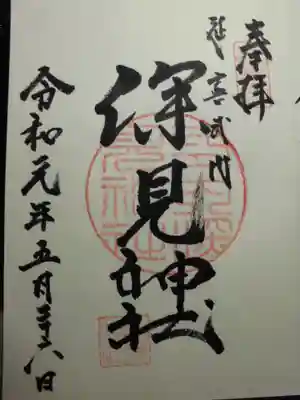 奉拝
延喜式内
深見神社
令和元年五月二十六日